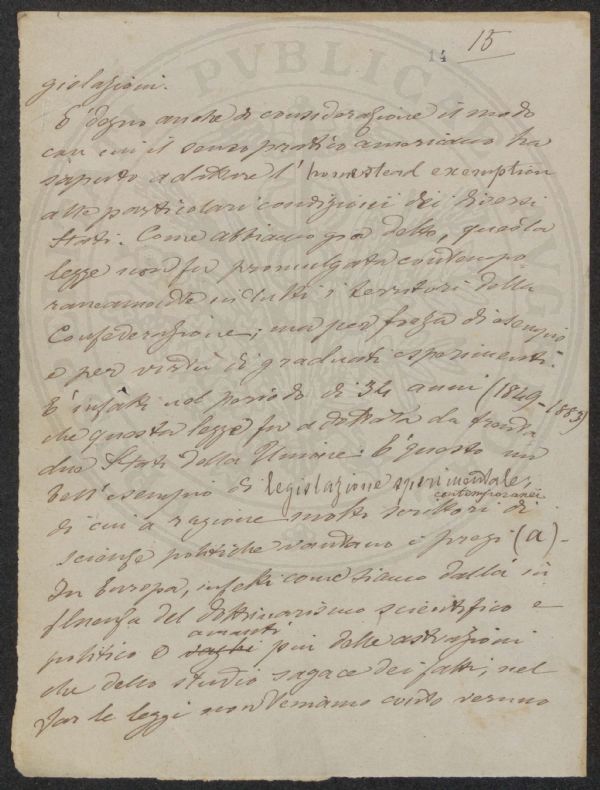 14 15
gislazioni.
È degno anche di considerazione il modo
con cui il senso pratico americano ha
saputo adattare l'homestead exemption
alle particolari condizioni dei diversi
Stati. Come abbiamo già detto, questa
legge non fu promulgata contempo
raneamente in tutti i territori della
Confederazione; ma per forza di esempio
e per virtù di graduati esperimenti.
È infatti nel periodo di 34 anni (1849-1883)
che questa legge fu adottata da trenta
due Stati della Unione. È questo un
bell'esempio di legislazione sperimentale,
contemporanei
di cui a ragione molti scrittori di
scienze politiche vantano i pregi (a)-
In Europa, infetti come siamo dalla in
fluenza del dottrinarismo scientifico e
amanti
politico e vaghi più delle astrazioni
che dello studio sagace dei fatti, nel
far le leggi non teniamo conto veruno